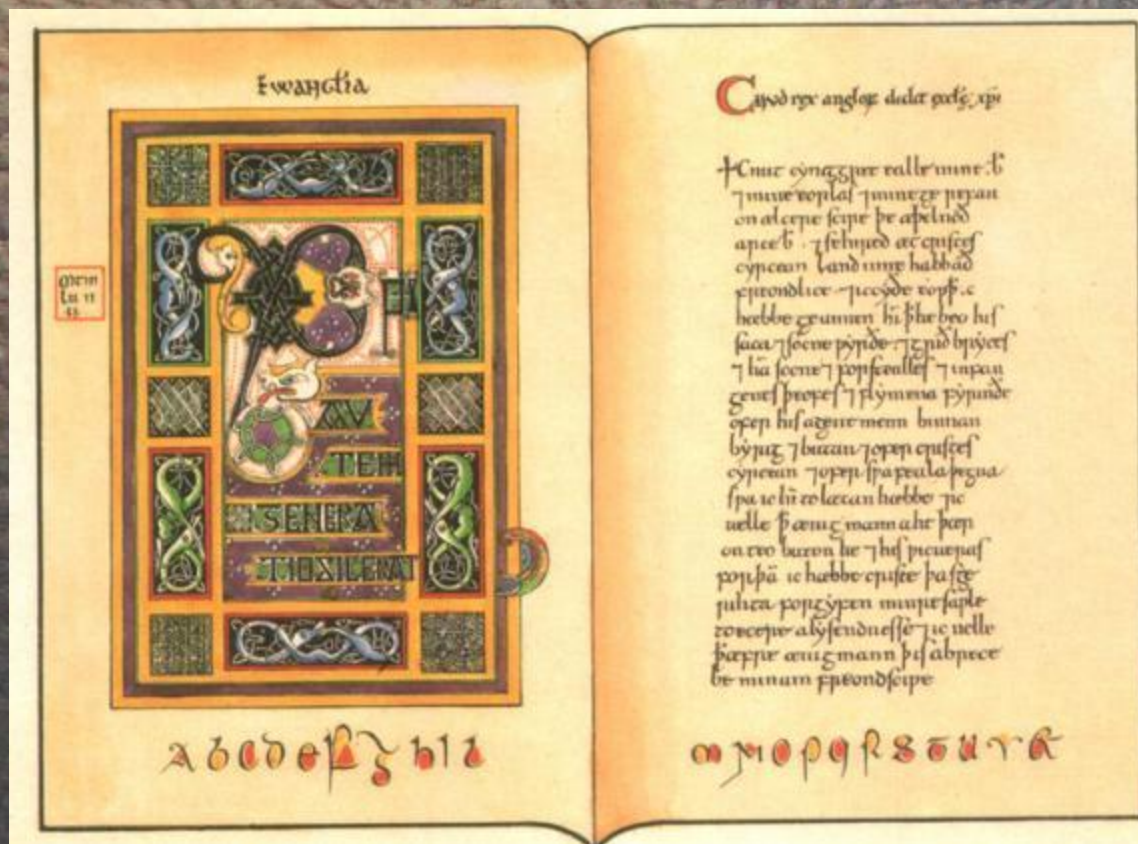 XPI
AU
TEM
GENERA
TIO SIC ERAT
a b c d e f g h i l
+Cnut cyncg gret ealle mine .b̄
⁊ mine eorlas ⁊ mine ge refan
on ælcere scire þe æþelnoð
arceb̄. ⁊ se hired æt cristes
cyrcean land inne habbað
freondlice ⁊ ic cyðe eoƿ ꝥ ic
hæbbe ge unnen hī ꝥ he beo his
saca ⁊ socne ƿyrðe. ⁊ grið bryces
⁊ hā socne ⁊ forstealles ⁊ infan
genes þeofes ⁊ flymena fyrmðe
ofer his agene menn binnan
byrig ⁊ butan ⁊ ofer cristes
cyrcean ⁊ ofer sƿa feala þegna
sƿa ic hī to lætan hæbbe ⁊ ic
nelle ꝥ ænig mann aht þær
on teo buton he ⁊ his ƿicneras
forþā ic hæbbe criste þas ge
rihta forgyfen minre saƿle
to ecere alysendnesse ⁊ ic nelle
ꝥ æfre ænig mann þis abrece
be minum freondscipe
m n o p q r s t u